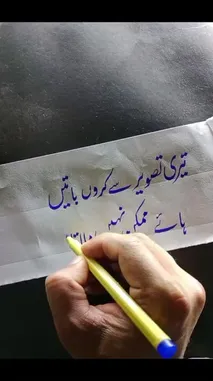 تیری تصویر سے کروں باتیں
ہائے ممکن نہیں